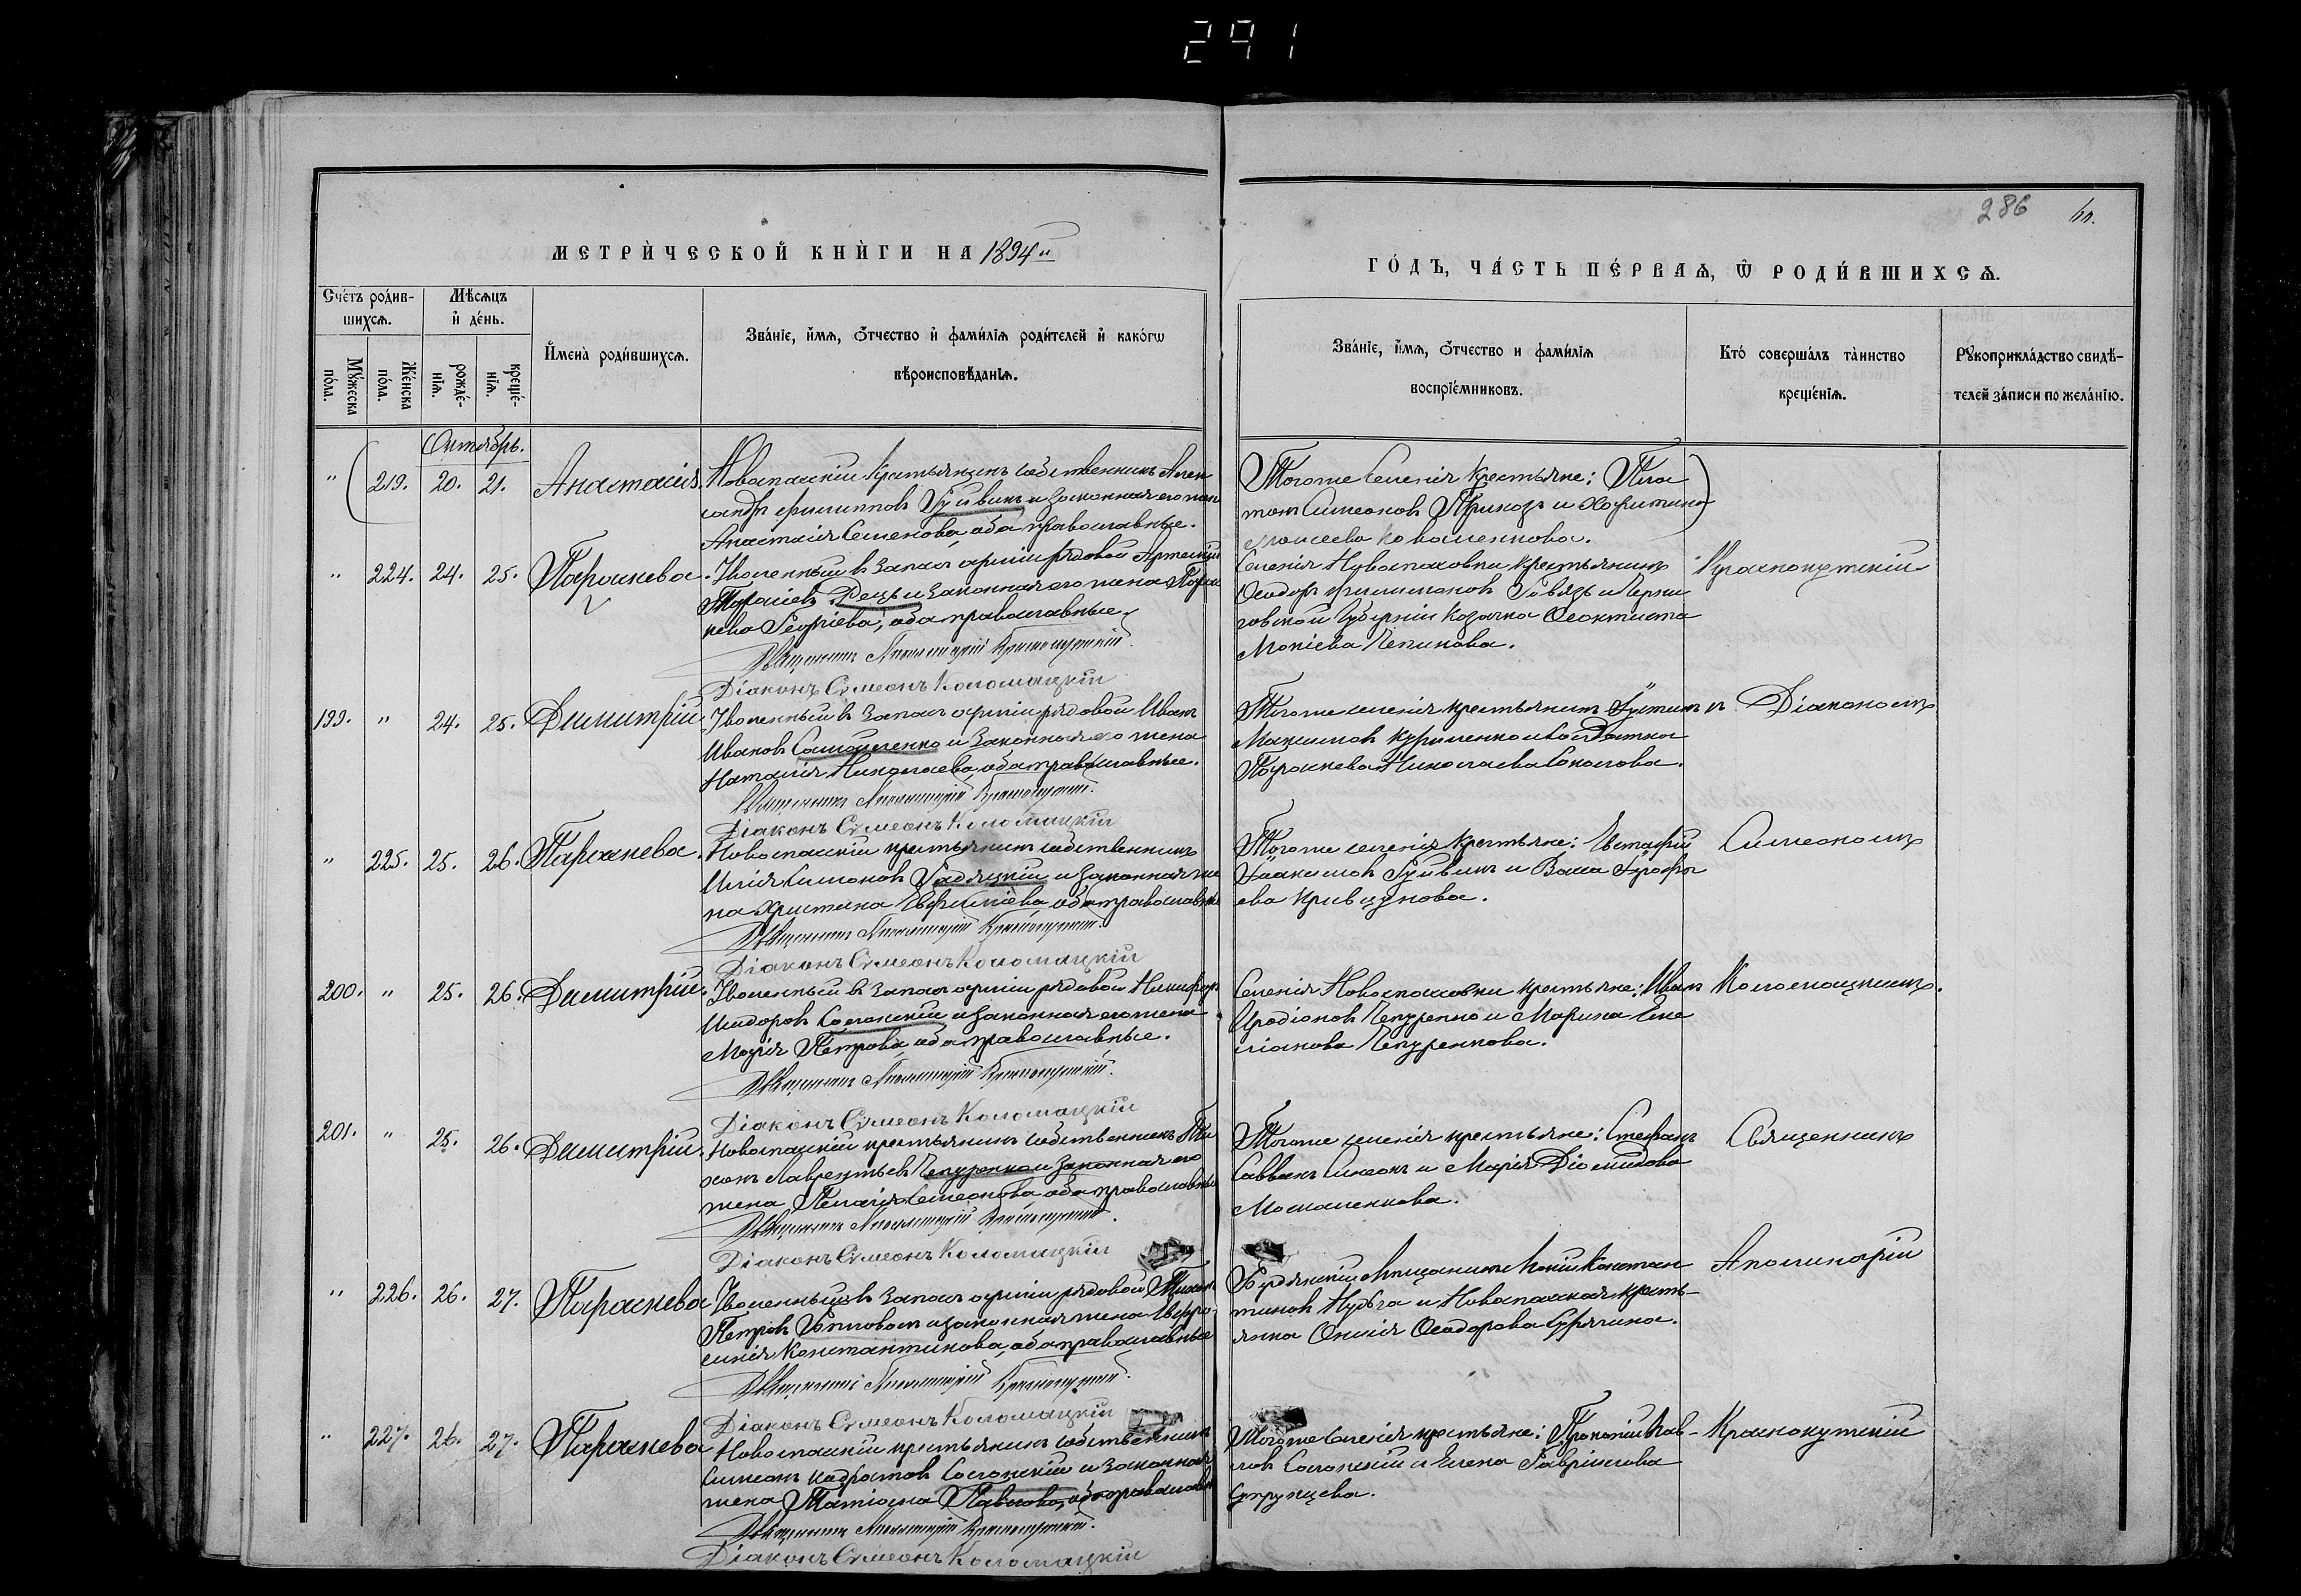 291
286
МЕТРИ́ЧЕСКОЙ КНИ́ГИ НА 1894й
ГО́ДЪ, ЧА́СТЬ ПЕ́РВАѦ, Ѡ РОДИ́ВШИХСѦ.
Сче́тъ роди́в-
шихсѧ.
Мꙋ́жеска по́ла.
Же́нска по́ла.
Мѣ́сѧцъ
и҆ де́нь.
рожде́-
нїѧ.
креще́-
нїѧ.
И҆мена̀ роди́вшихсѧ.
Зва́нїе, и҆́мѧ, ѻ҆́тчество и҆ фами́лїѧ роди́телей и҆ како́гѡ
вѣроисповѣ́данїѧ.
Зва́нїе, и҆́мѧ, ѻ҆́тчество и фами́лїѧ
воспрїе́мниковъ.
Кто́ соверша́лъ та́инство
креще́нїѧ.
Рꙋкоприкла́дство свидѣ́-
телей за́писи по жела́нїю.
Октябрь.
" 219. 20. 21. Анастасія.
Новоспаскій крестьянинъ собственникъ Алек
сандръ Филипповъ Гуйвикъ и законная его жен
Анастасія Семенова, оба православные.
Тогоже селенія крестьяне: Пла
тонъ Симеоновъ и Харитина
Моисеева Коваленкова.
" 224. 24. 25. Параскева.
Уволенный въ запасъ арміи рядовой Артемій
Тарасіевъ Рець и законная его жена Парас
кева Георгіева, оба православные.
Священникъ Аполлинарій Краснокутскій.
Діаконъ Сѵмеонъ Коломацкій
Селенія Новоспасовки крестьянинъ
Ѳеодоръ Филимоновъ и Черни
говской Губерніи козачка Ѳеоктиста
Мокіева
Краснокутскій
199. " 24. 25. Димитрій.
Уволенный въ запасъ арміи рядовой Иванъ
Ивановъ Самойленко и законная его жена
Наталія Николаева, оба православные.
Священникъ Аполлинарій Краснокутскій.
Діаконъ Сѵмеонъ Коломацкій
Тогоже селенія крестьянинъ Іустинъ
Максимовъ Куриленко и Солдатка
Параскева Николаева Соколова.
и Діакономъ
" 225. 25. 26. Параскева.
Новоспаскій крестьянинъ собственникъ
Илія Симоновъ Гадяцкій и законная же
на Христина Евфиміева, оба православн
Священникъ Аполлинарій Краснокутскій.
Діаконъ Сѵмеонъ Коломацкій
Тогоже селенія крестьяне: Евстафій
Іоакимовъ Гуйвикъ и Васса
ева Кривцунова.
Симеономъ
200. " 25. 26. Димитрій.
Уволенный въ запасъ арміи рядовой Никифоръ
Исидоровъ Сосонскій и законная его жена
Марія Петрова, оба православные.
Священникъ Аполлинарій Краснокутскій.
Діаконъ Сѵмеонъ Коломацкій
Селенія Новоспасовки крестьяне: Иванъ
Иродіоновъ Чепуренко и Марина Еме
ліанова Чепуренкова.
Коломацкимъ.
201. " 25. 26. Димитрій.
Новоспаскій крестьянинъ собственникъ Ти
хонъ Лаврентьевъ Чепуренко и законная его
жена Пелагія Симеонова, оба православные
Священникъ Аполлинарій Краснокутскій.
Діаконъ Сѵмеонъ Коломацкій
Тогоже селенія крестьяне: Стефанъ
Саввинъ и Марія Діомидова
Москаленкова.
Священникъ
" 226. 26. 27. Параскева
Уволенный въ запасъ арміи рядовой
Петровъ и законная жена Евфро
синія Константинова, оба православные
Священникъ Аполлинарій Краснокутскій.
Діаконъ Сѵмеонъ Коломацкій
Бердянскій мѣщанинъ Констан
тиновъ и Новоспаская кресть-
янка Ѳеодорова
Аполинарій
" 227. 26. 27. Параскева
Новоспаскій крестьянинъ собственникъ
Симеонъ Кодратовъ Сосонскій и законная
жена Татіана Павлова, оба православн
Священникъ Аполлинарій Краснокутскій.
Діаконъ Сѵмеонъ Коломацкій
Тогоже селенія крестьяне: Прокопій Пав-
ловъ Сосонскій и Елена Гавріилова
Супрунцева.
Краснокутскій